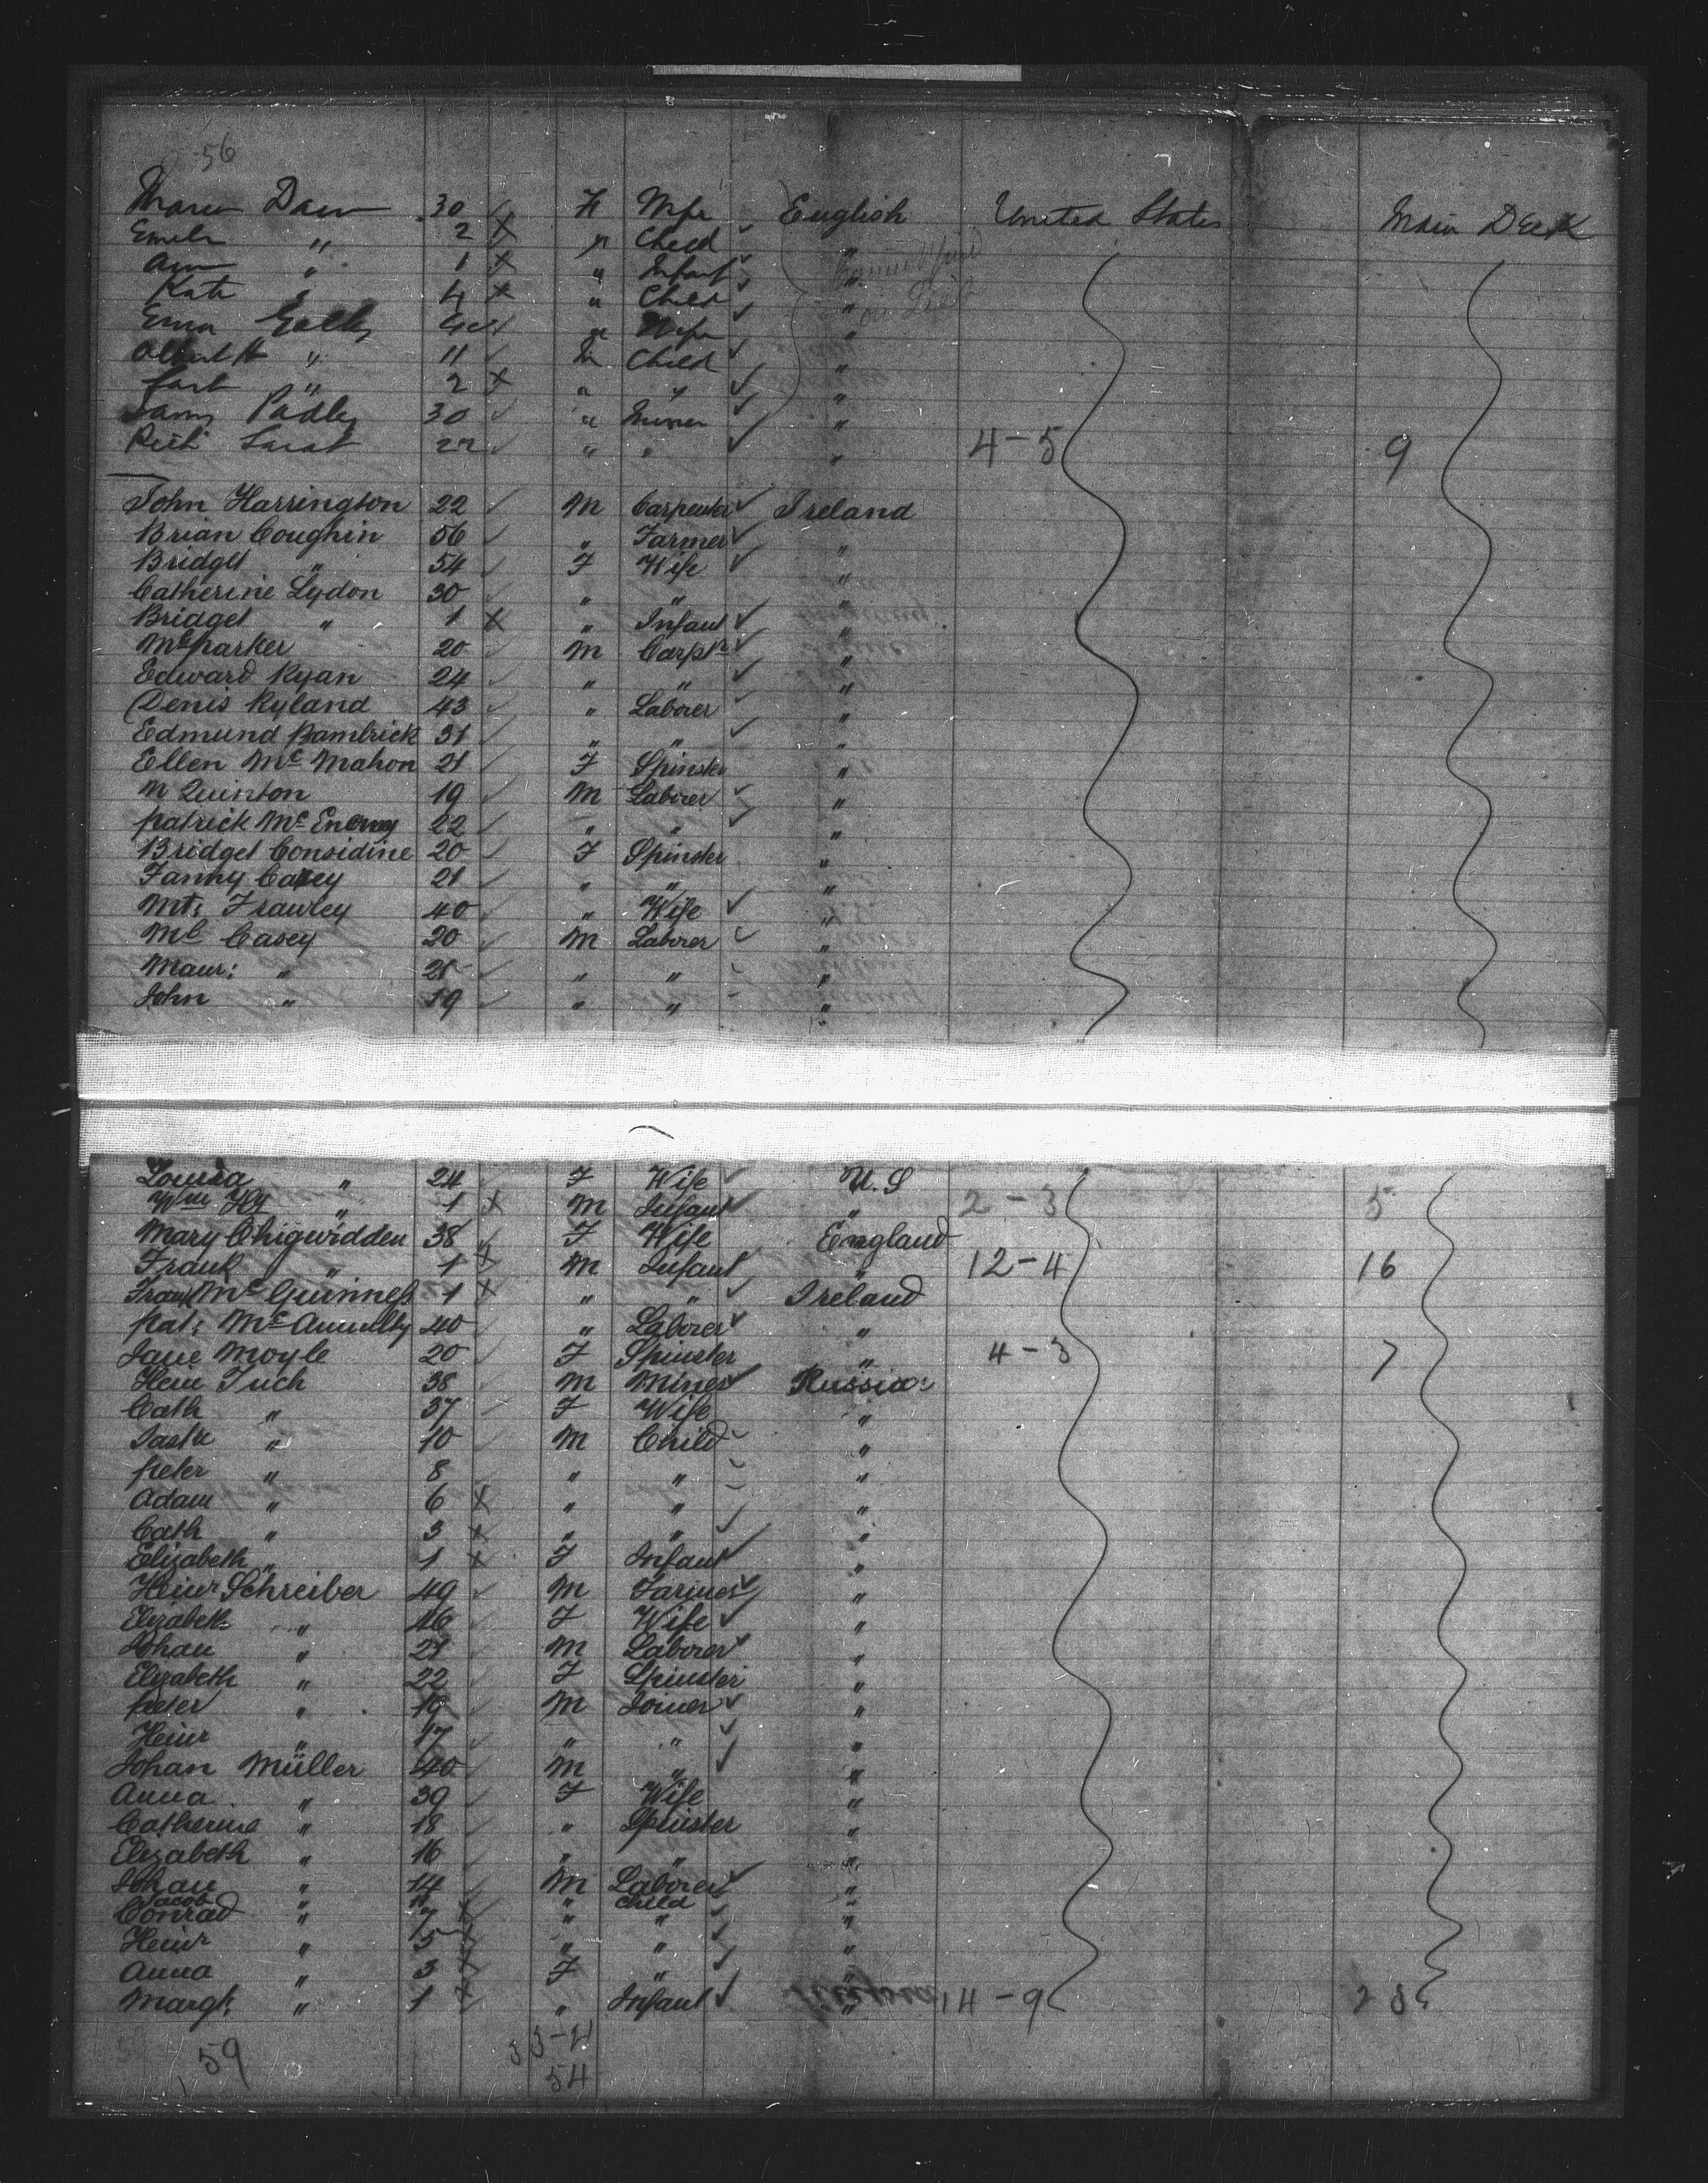 56
Daw 30 ✓ F Wife ✓ English United States Main Deck
" 2 X " Child ✓ "
" 1 X " Infant ✓ "
Kate " 4 X " Child ✓ "
✓ " Wife "
Albert H " 11 ✓ M Child ✓ "
" 2 X " " ✓ "
Padley 30 ✓ " Miner ✓ "
22 ✓ " " ✓ " 4-5 9
John Harrington 22 ✓ M Carpenter ✓ Ireland
Brian Coughin 56 ✓ " Farmer ✓ "
Bridget " 54 ✓ F Wife ✓ "
Catherine Lydon 30 ✓ " " "
Bridget " 1 X " Infant ✓ "
McParker 20 ✓ M Carptr ✓ "
Edward Ryan 24 ✓ " " ✓ "
Denis Ryland 43 ✓ " Laborer ✓ "
Edmund Bambrick 31 ✓ " " ✓ "
Ellen Mc Mahon 21 ✓ F Spinster "
M Quinton 19 ✓ M Laborer ✓ "
Patrick Mc 22 ✓ " " ✓ "
Bridget Considine 20 ✓ F Spinster "
Fanny Casey 21 ✓ " " "
Mts Frawley 40 ✓ " Wife ✓ "
Ml Casey 20 ✓ M Laborer ✓ "
Maur: " 21 ✓ " " ✓ "
John " 19 ✓ " " ✓ "
Louisa " 24 ✓ F Wife ✓ U.S
Wm Hy " 1 X M Infant ✓ " 2-3 5
Mary Chigwidden 38 ✓ F Wife England
Frank " 1 X M Infant " 12-4 16
Mc Guinness 1 X " " ✓ Ireland
Pat: Mc 40 ✓ " Laborer ✓ "
Jane Moyle 20 ✓ F Spinster " 4-3 7
Heinr Tuch 38 ✓ M Miner ✓ Russia
Cath " 37 ✓ F Wife "
" 10 ✓ M Child ✓ "
Peter " 8 ✓ " " ✓ "
Adam " 6 X " " ✓ "
Cath " 3 X " " ✓ "
Elizabeth " 1 X F Infant ✓ "
Heinr Schreiber 49 ✓ M Farmer ✓ "
Elizabeth " 46 ✓ F Wife ✓ "
Johan " 21 ✓ M Laborer ✓ "
Elizabeth " 22 ✓ F Spinster "
Peter " 19 ✓ M Joiner ✓ "
Heinr " 17 ✓ " " ✓ "
Johan Müller 40 ✓ M " ✓ "
Anna " 39 ✓ F Wife "
Catherine " 18 ✓ " Spinster "
Elizabeth " 16 ✓ " " "
Johan " 14 ✓ M Laborer ✓ "
Jacob " 11 " Child "
Conrad " 7 X " " ✓ "
Heinr " 5 X " " ✓ "
Anna " 3 X F " ✓ "
Margt: " 1 X " Infant ✓ " 14-9 23
59 33-21
54